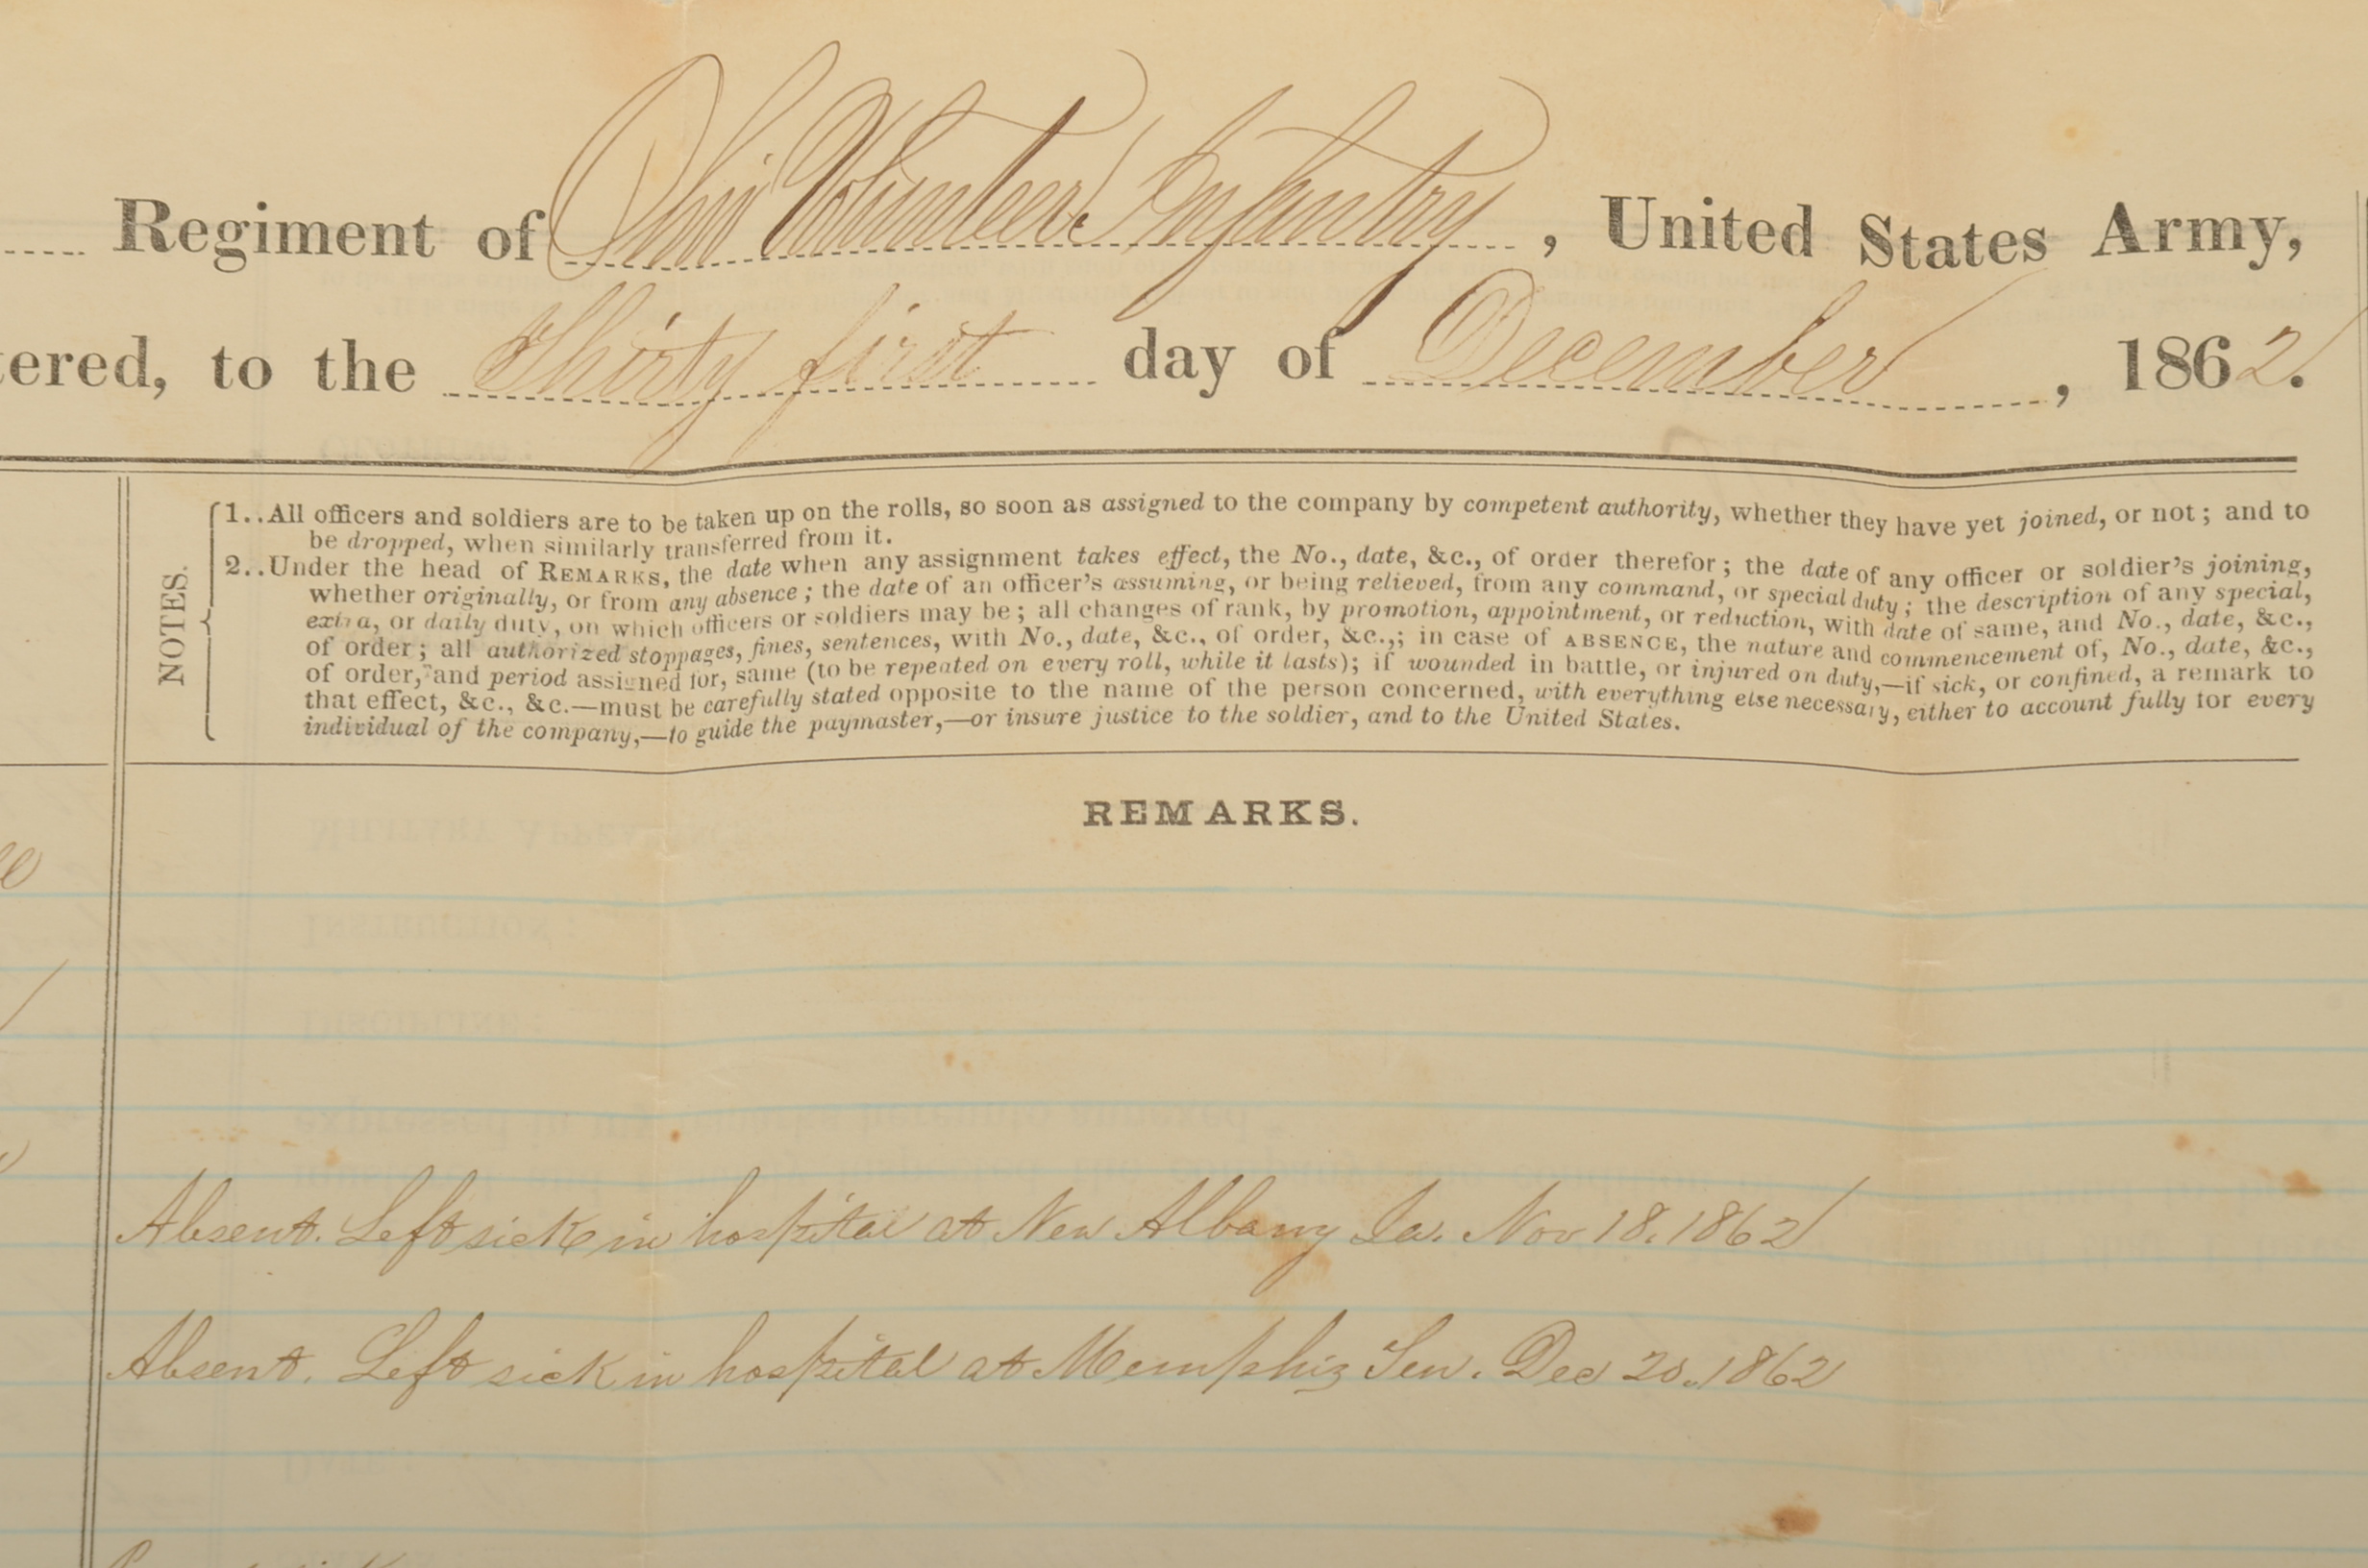 Regiment of Ohio Volunteer Infantry, United States Army,
tered, to the Thirty first day of December, 1862.
NOTES.
1..All officers and soldiers are to be taken up on the rolls, so soon as assigned to the company by competent authority, whether they have yet joined, or not; and to
be dropped, when similarly transferred from it.
2..Under the head of REMARKS, the date when any assignment takes effect, the No., date, &c., of order therefor; the date of any officer or soldier's joining,
whether originally, or from any absence; the date of an officer's assuming, or being relieved, from any command, or special duty; the description of any special,
extra, or daily duty, on which officers or soldiers may be; all changes of rank, by promotion, appointment, or reduction, with date of same, and No., date, &c.,
of order; all authorized stoppages, fines, sentences, with No., date, &c., of order, &c.,; in case of ABSENCE, the nature and commencement of, No., date, &c.,
of order, and period assigned for, same (to be repeated on every roll, while it lasts); if wounded in battle, or injured on duty,—if sick, or confined, a remark to
that effect, &c., &c.—must be carefully stated opposite to the name of the person concerned, with everything else necessary, either to account fully for every
individual of the company,—to guide the paymaster,—or insure justice to the soldier, and to the United States.
REMARKS.
Absent. Left sick in hospital at New Albany Ia. Nov 18. 1862
Absent. Left sick in hospital at Memphis Ten. Dec 20. 1862